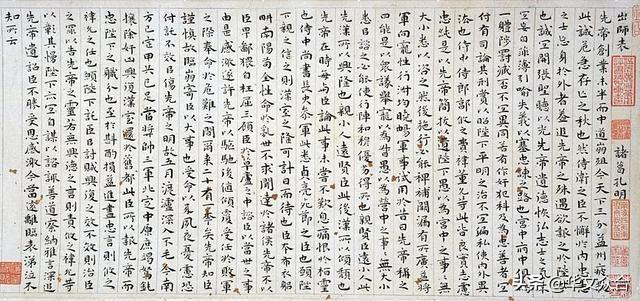 出師表
諸葛孔明
先帝創業未半而中道崩殂今天下三分益州疲弊
此誠危急存亡之秋也然侍衛之臣不懈於內忠志
之士忘身於外者蓋追先帝之殊遇欲報之於陛下
也誠宜開張聖聽以光先帝遺德恢弘志士之氣不
宜妄自菲薄引喻失義以塞忠諫之路也宮中府中俱為
一體陟罰臧否不宜異同若有作奸犯科及為忠善者宜
付有司論其刑賞以昭陛下平明之治不宜偏私使內外異
法也侍中侍郎郭攸之費禕董允等此皆良實志慮
忠純是以先帝簡拔以遺陛下愚以為宮中之事事無
大小悉以咨之然後施行必能裨補闕漏有所廣益將
軍向寵性行淑均曉暢軍事試用於昔日先帝稱之
曰能是以衆議舉寵為督愚以為營中之事事無大小
悉以咨之必能使行陣和穆優劣得所也親賢臣遠小人此
先漢所以興隆也親小人遠賢臣此後漢所以傾頹也
先帝在時每與臣論此事未嘗不歎息痛恨於桓靈
也侍中尚書長史參軍此悉貞亮死節之臣也願陛
下親之信之則漢室之隆可計日而待也臣本布衣躬
耕南陽苟全性命於亂世不求聞達於諸侯先帝不以
臣卑鄙猥自枉屈三顧臣於草廬之中諮臣以當世之事
由是感激遂許先帝以驅馳後值傾覆受任於敗軍
之際奉命於危難之間爾來二十有一年矣先帝知臣
謹慎故臨崩寄臣以大事也受命以來夙夜憂慮恐
付託不效以傷先帝之明故五月渡瀘深入不毛今南
方已定甲兵已足當獎帥三軍北定中原庶竭駑鈍
攘除奸凶興復漢室還於舊都此臣所以報先帝而忠
陛下之職分也至於斟酌損益進盡忠言則攸之
禕允之任也願陛下託臣以討賊興復之效不效則治臣
之罪以告先帝之靈若無興德之言則責攸之禕允等
以彰其慢陛下亦宜自謀以諮諏善道察納雅言深追
先帝遺詔臣不勝受恩感激今當遠離臨表涕泣不
知所云